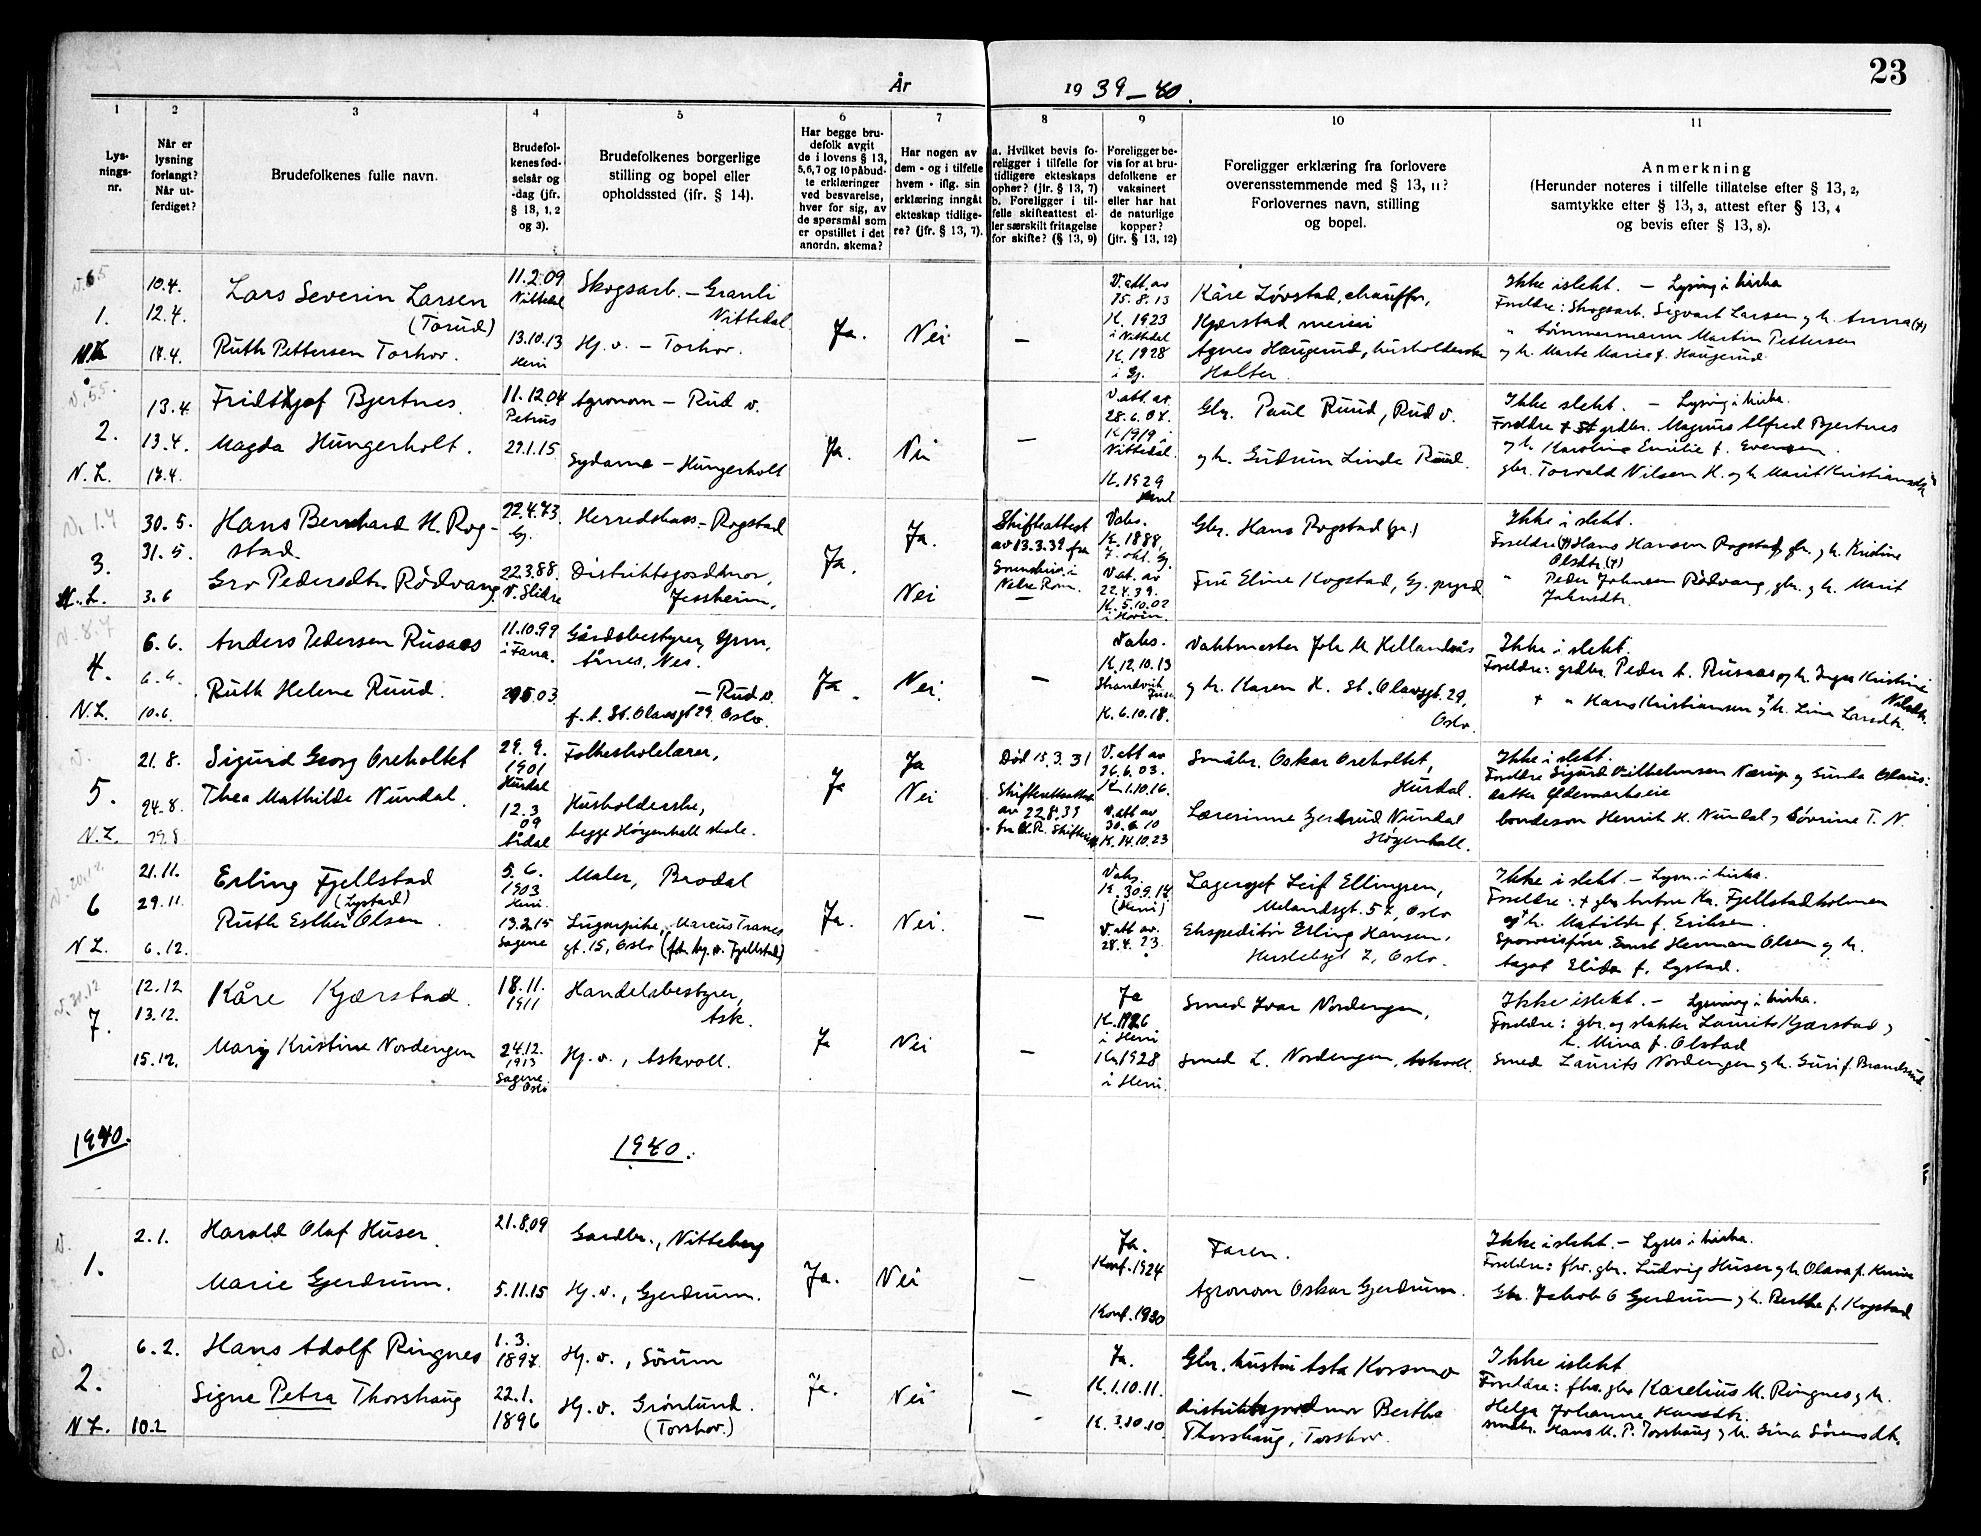 23
År 1939-40.
1
2
3
4
5
6
7
8
9
10
11
Lys-
nings-
nr.
Når er
lysning
forlangt?
Når ut-
ferdiget?
Brudefolkenes fulle navn.
Brudefol-
kenes fød-
selsår og
-dag (jfr.
§ 13, 1, 2
og 3).
Brudefolkenes borgerlige
stilling og bopel eller
opholdssted (ifr. § 14).
Har begge bru-
defolk avgit
de i lovens § 13,
5, 6, 7 og 10 påbud-
te erklæringer
ved besvarelse,
hver for sig, av
de spørsmål som
er opstillet i det
anordn. skema?
Har nogen av
dem - og i tilfelle
hvem - iflg. sin
erklæring inngåt
ekteskap tidlige-
re? (jfr. § 13, 7).
a. Hvilket bevis fo-
religger i tilfelle for
tidligere ekteskaps
opher? (jfr. § 13, 7)
b. Foreligger i til-
felle skifteattest el-
ler særskilt fritagelse
for skifte? (§ 13, 9)
Foreligger be-
vis for at bru-
defolkene er
vaksinert
eller har hat
de naturlige
kopper?
(jfr. § 13, 12)
Foreligger erklæring fra forlovere
overensstemmende med § 13, 11?
Forlovernes navn, stilling
og bopel.
Anmerkning
(Herunder noteres i tilfelle tillatelse efter § 13, 2,
samtykke efter § 13, 3, attest efter § 13, 4
og bevis efter § 13, 8).
1.
10.4.
12.4.
14.4.
Lars Severin Larsen
(Torud)
Ruth Pettersen Torhov.
11.2.09
Nittedal
13.10.13
Heni
Skogsarb. – Granli
Nittedal.
Hj. v. – Torhov.
Ja.
Nei
–
V. att. av
15.8.13
K. 1923
i Nittedal
K. 1928
i Gj.
Kåre Lövstad, chauffør,
Kjærstad meieri
Agnes Haugerud, husholderske
Holter.
Ikke i slekt. – Lysning i kirka
Foreldre: Skogsarb. Sigvart Larsen og h. Anna (+)
" tömmermann Martin Pettersen
og h. Marte Marie f. Haugerud
2.
N. L.
13.4
13.4.
17.4.
Fridthjof Bjertnes.
Magda Hungerholt.
11.12.04
Petrus
29.1.15
Agronom – Rud v.
Sydame – Hungerholt
Ja.
Nei
–
V. att. av.
28.6.04.
K 1919 i
Nittedal.
K. 1929
Heni
Gbr. Paul Ruud, Rud v.
og h. Gudrun Linda Ruud.
Ikke slekt. – Lysning i kirka.
Foreldre + grdbr. Magnus Alfred Bjertnes
og h. Karoline Emilie f. Evensen.
gbr. Torvald Nilsen H. og h. Marit Kristiansdtr
3.
N. L.
30.5.
31.5.
3.6
Hans Bernhard H. Rog-
stad.
Gro Pedersdtr. Rödvang
22.4.73.
Gj.
22.3.88.
V. Slidre
Herredskass – Rogstad
Distriktsjordmor,
Jessheim,
Ja.
Ja.
Nei
Skifteattest
av 13.3.39 fra
Sorenskriv. i
Nedre Rom.
–
Vaks.
K. 1888,
7. okt. Gj.
V. at. av
22.4.39.
K. 5.10.02
Gbr. Hans Rogstad (jr.)
Frü Eline Kogstad, Gj. prgrd
Ikke i slekt.
Foreldre (+) Hans Hansen Rogstad, gbr. og h. Kristine
Olsdtr. (+)
" Peder Johnsen Rödvang, gbr. og h. Marit
Johnsdtr.
4.
N. L.
6.6.
10.6.
Anders Pedersen Rusaas
Ruth Helene Ruud.
11.10.99
i Fana.
Gårdsbestyrer,
Årnes, Nes.
– Rud v.
f. t. St. Olavsgt 29 Oslo.
Ja.
Nei.
–
Vaks.
K. 12.10.13
Strandvik
K. 6.10.18.
Vaktmester Joh. M. Hellandsås
og h. Karen H. St. Olavsgt. 29,
Oslo.
Ikke i slekt.
Foreldre: grdbr. Peder A. Rusaas og h. Inger Kristine
Nilsdtr.
+ " Hans Kristiansen og h. Lina Larsdtr.
5.
N. L.
21.8.
24.8.
29.8.
Sigurd Georg Oreholtet
Thea Mathilde Nundal.
29.9.
1901
Hurdal
12.3
09
Årdal
Folkeskolelærer,
Husholderske,
begge Høgenhall skole.
Ja
Ja
Nei
Död 15.3.31
Skifteattest
av 22.8.39
V. att av
26.6.03.
K. 1.10.16.
V. att av
30.6.10
K. 14.10.23
Småbr. Oskar Oreholtet,
Hurdal.
Lærerinne Gjertrud Nundal
Høgenhall.
Ikke i slekt.
Foreldre Sigurd Vilhelmsen Nærup og Gunda Olaus-
datter
bondeson Henrik H. Nundal og Sövrine T. N.
6
N L.
21.11.
29.11.
6.12.
Erling Fjellstad
(Lystad)
Ruth Esther Olsen.
5.6.
1903
Heni.
13.2.15
Sagene
Maler, Brodal
Lugarpike, Marcus Tranes
gt. 15, Oslo
Ja.
Nei.
–
Vaks.
K. 30.9.17
(Heni)
V. att av.
28.4.23.
Lagersjef Leif Ellingsen,
Melandsgt. 57, Oslo
Ekspeditör Erling Hansen,
Herslebsgt 2, Oslo.
Ikke i slekt – Lysn. i kirka.
Foreldre: + gbr. Anton Kr. Fjellstadholmen
og h. Matilde f. Eriksen.
Sporveisfører Ernst Herman Olsen og h.
Aagot Elida f. Lystad.
7.
12.12
13.12.
15.12.
Kåre Kjærstad.
Mary Kristine Nordengen
18.11.
1911
24.12.
1913
Sagene
Oslo
Handelsbestyrer,
Ask.
Hj. v., Askvoll.
Ja
Nei
–
Ja
K. 1926
i Heni
K. 1928
i Heni.
Smed Ivar Nordengen,
Smed L. Nordengen, Askvoll.
Ikke i slekt. – Lysning i kirka.
Foreldre: gbr. og slakter Laurits Kjærstad og
h. Mina f. Olstad
Smed Laurits Nordengen og h. Guri f. Brandsrud.
1940.
1940.
1.
2.1.
Harald Olaf Huser.
Marie Gjerdrum.
21.8.09
5.11.15
Gardbr., Nitteberg
Hj. v., Gjerdrum.
Ja.
Nei
–
Ja.
Konf. 1924
Konf. 1930
Faren.
Agronom Oskar Gjerdrum.
Ikke i slekt. – Lyses i kirka.
Foreldre: fhv. gbr. Ludvig Huser og h. Olava f.
Gbr. Jakob O Gjerdrum og h. Berthe f. Kogstad
2.
N L.
6.2.
10.2
Hans Adolf Ringnes
Signe Petra Thorshaug
1.3.
1897.
22.1.
1896
Hj. v., Sörum
Hj. v. Grönlund.
(Torshov.)
Ja.
Nei
–
Ja.
K. 1.10.11.
K. 3.10.10.
Gbr. hustru Asta Korsmo
distriktsjordmor Bertha
Thorshaug, Torshov.
Ikke i slekt
Foreldre: fhv. gbr Karelius M. Ringnes og h.
Helga Johanne Hansdtr.
småbr. Hans M. P. Torshaug og h. Sina Sörensdtr.